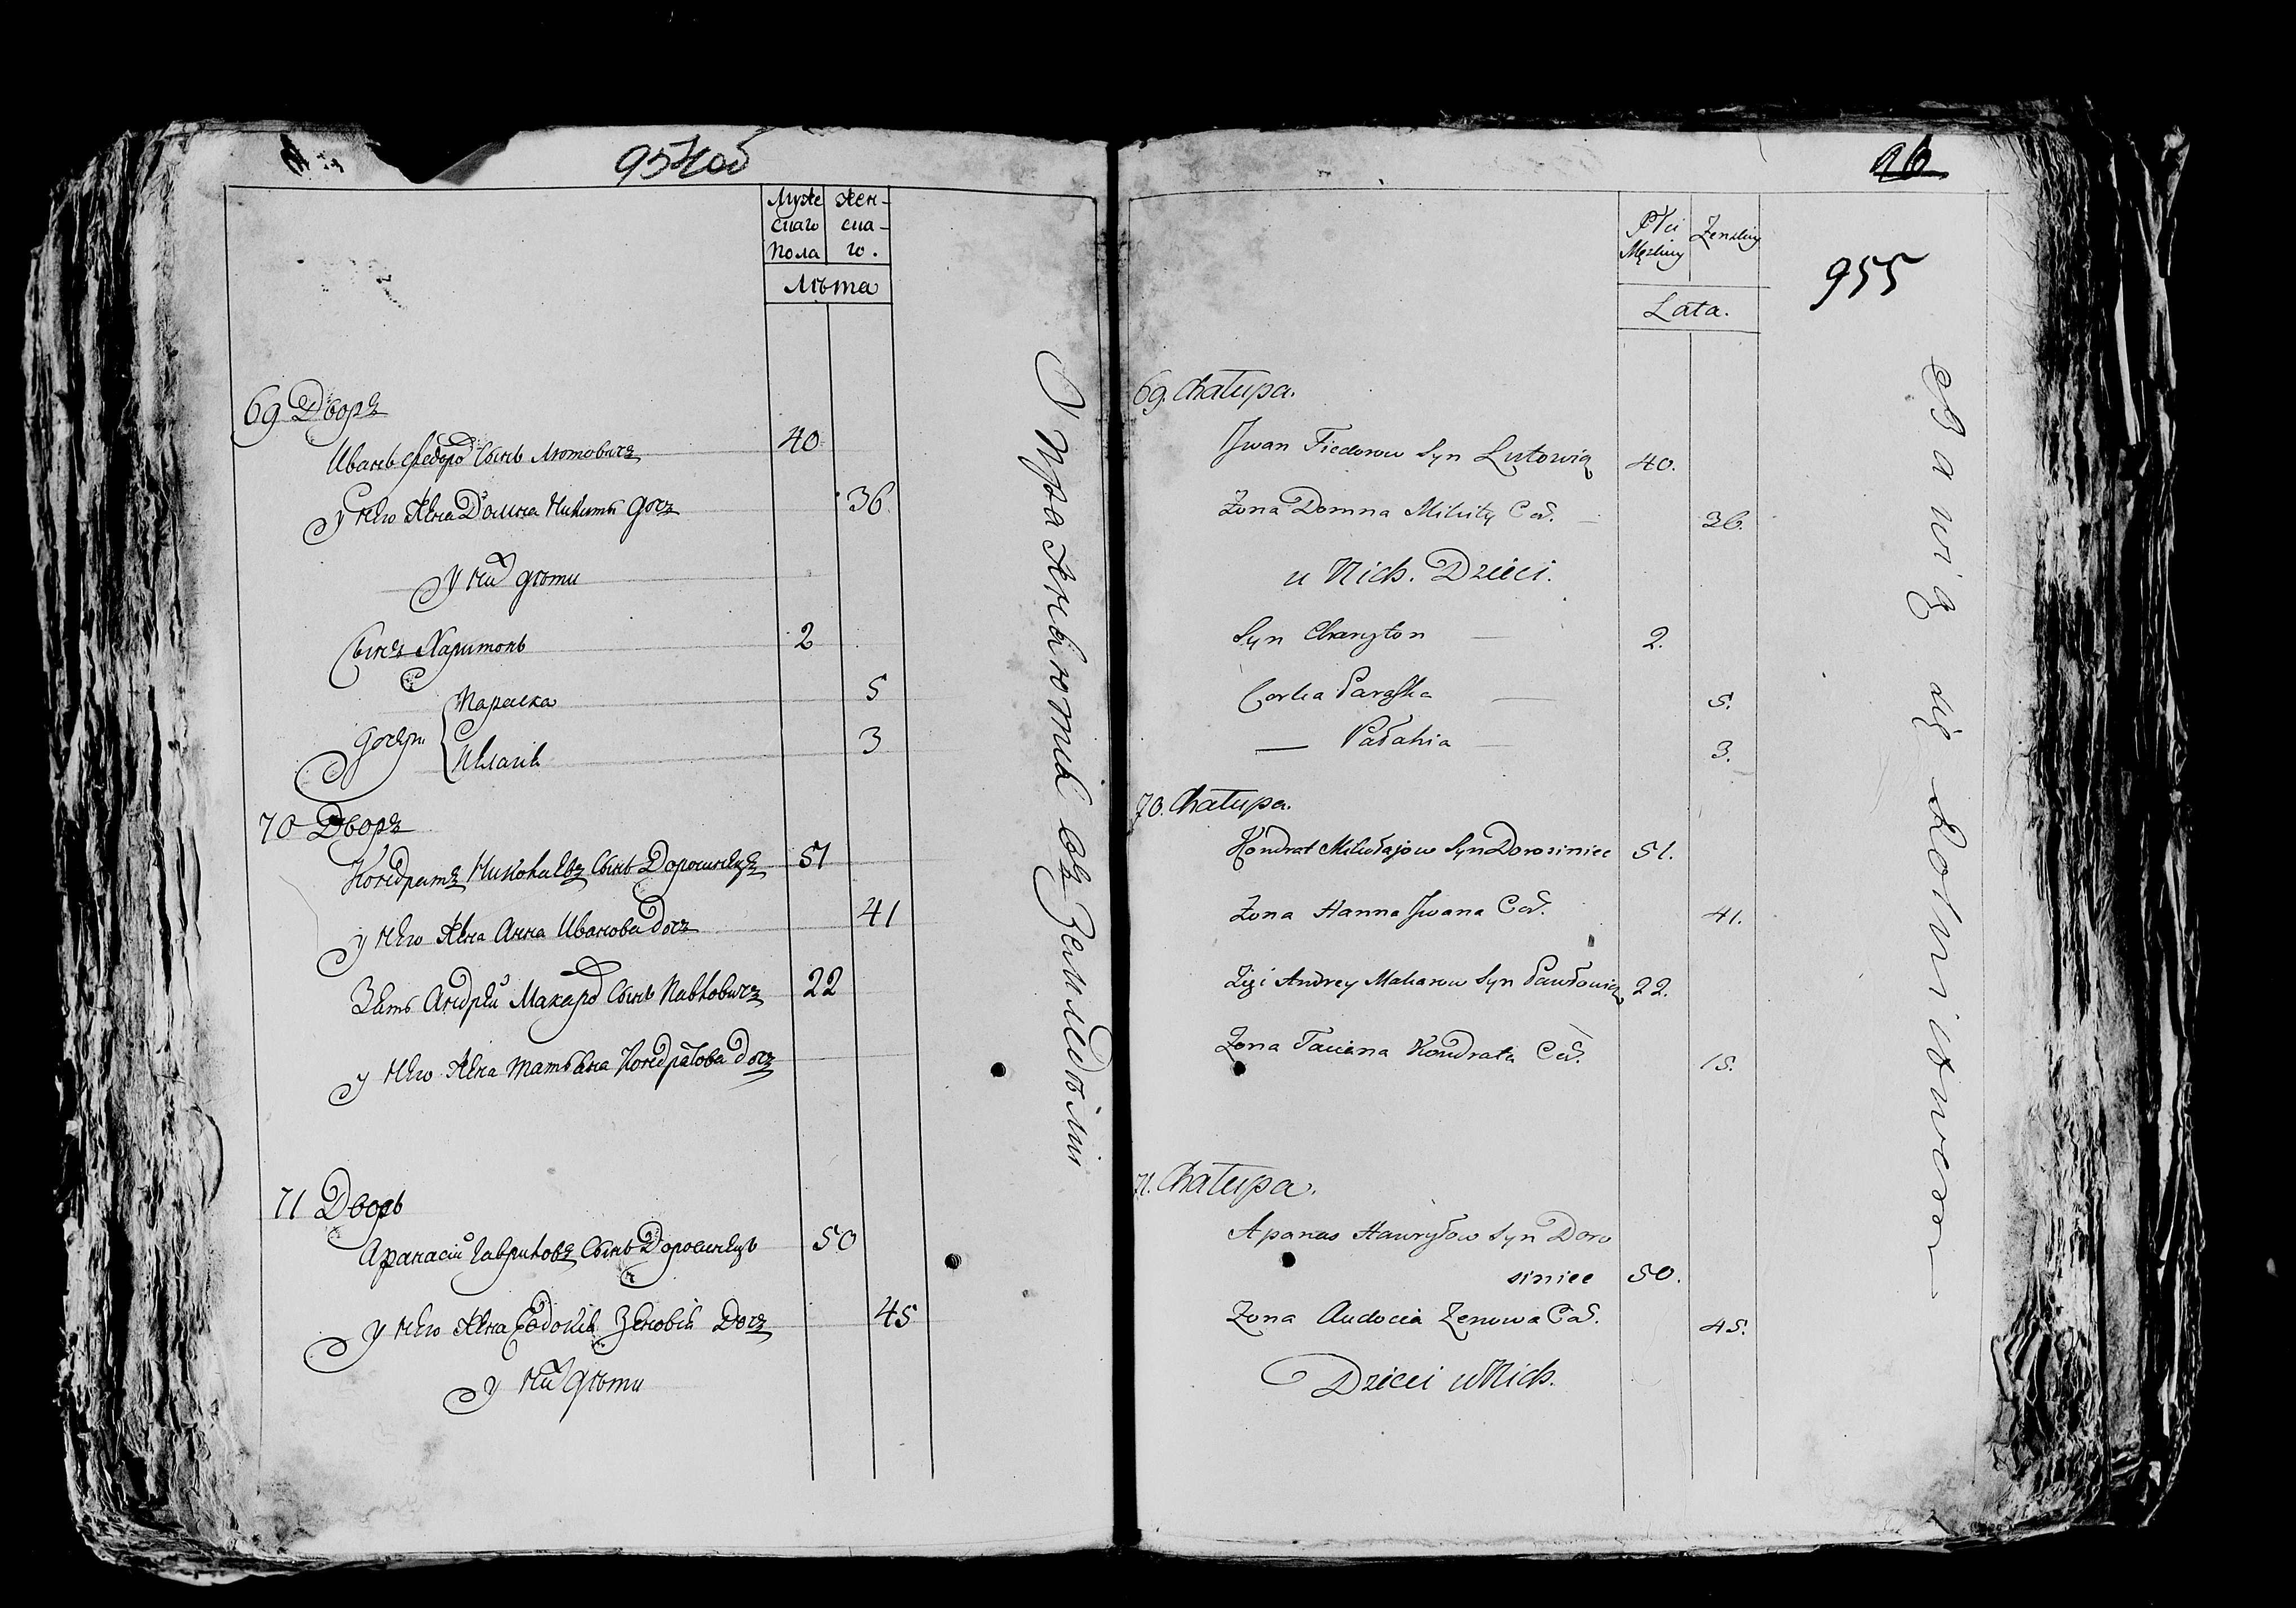 954об
Муже
скаго
Пола
Жен-
ска-
го.
Лѣта
69 Дворъ
Иванъ Федоро Сынъ Лютовичъ 40
У него Жена Домна Никиты дочъ 36
У них дѣти
Сынъ Харитонъ 2
дочери
Параска 5
Пелагія 3
70 Дворъ
Кондратъ Николаевъ Сынъ Дорошинецъ 51
у него Жена Анна Иванова Дочъ 41
Зять Андрей Макаро Сынъ Павловичъ 22
у него Жена Татьяна Кондратова Дочъ
71 Дворъ
Афанасій Гавриловъ Сынъ Дорошинецъ 50
у него Жена Евдокія Зеновія Дочъ 45
у них дѣти
Упражняются въ Земледѣліи
96
955
Płci
Męzkiey
Zenskiey
Lata.
69. Chałupa.
Jwan Fiedorow Syn Lutowicz 40.
Zona Domna Mikity Cór. 36.
u Nich. Dzieci.
Syn Charyton 2.
Corka Paraska 5.
— Pałahia 3.
70. Chałupa.
Kondrat Mikołajow Syn Dorosiniec 51.
Zona Hanna Jwana Cór. 41.
Zięć Andrey Makarow Syn Pawłowicz 22.
Zona Taciana Kondrata Cór. 15.
71. Chałupa.
Apanas Hawryłow Syn Doro
siniec 50.
Zona Audocia Zenowa Cór. 45.
Dzieci u Nich.
Bawią się Rolnictwem